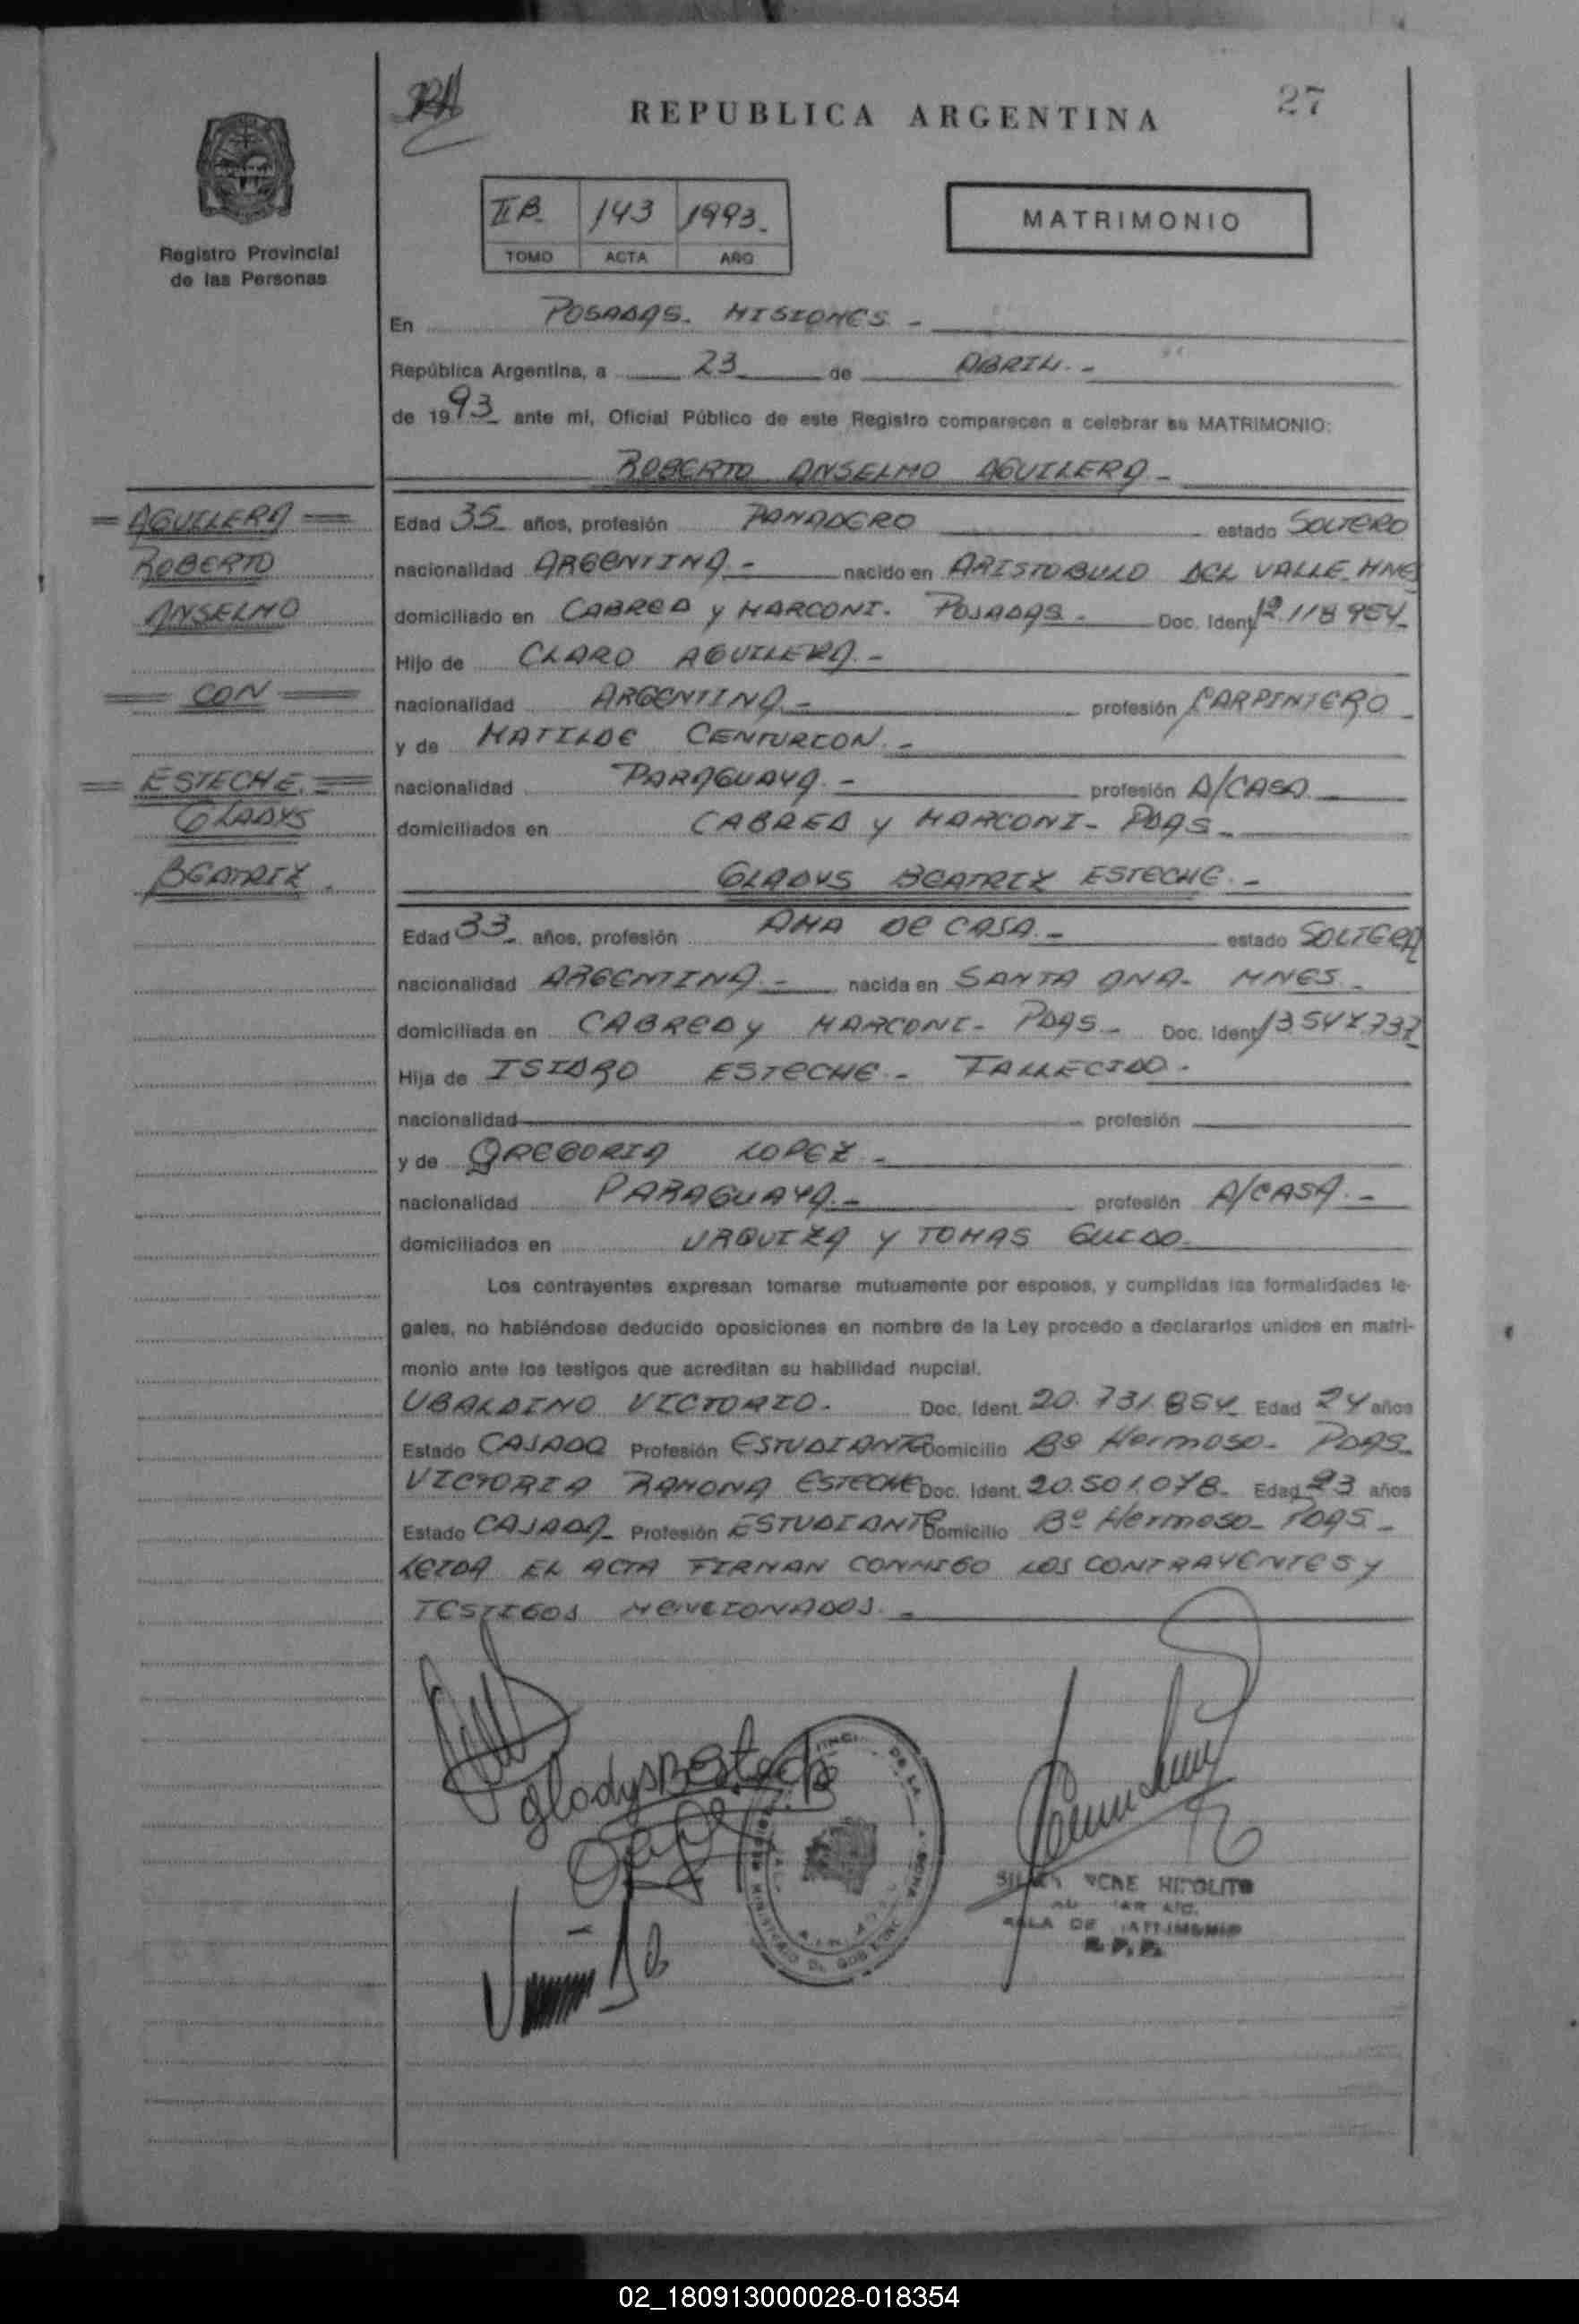 27
REPUBLICA ARGENTINA
II B. 143 1993.
TOMO ACTA AÑO
MATRIMONIO
Registro Provincial
de las Personas
En POSADAS. MISIONES -
República Argentina, a 23 de ABRIL. -
de 1993 ante mi, Oficial Público de este Registro comparecen a celebrar su MATRIMONIO:
ROBERTO ANSELMO AGUILERA -
= AGUILERA =
ROBERTO
ANSELMO
= CON =
= ESTECHE. =
GLADYS
BEATRIZ.
Edad 35 años, profesión PANADERO estado SOLTERO
nacionalidad ARGENTINA. - nacido en ARISTOBULO DEL VALLE. MNES
domiciliado en CABRED y MARCONI. POSADAS. Doc. Ident. 12.118.954.
Hijo de CLARO AGUILERA. -
nacionalidad ARGENTINA. - profesión CARPINTERO -
y de MATILDE CENTURION. -
nacionalidad PARAGUAYA. - profesión A/CASA.
domiciliados en CABRED y MARCONI - PDAS -
GLADYS BEATRIZ ESTECHE. -
Edad 33 años, profesión AMA DE CASA. - estado SOLTERA
nacionalidad ARGENTINA. - nacida en SANTA ANA - MNES. -
domiciliada en CABRED y MARCONI - PDAS - Doc. Ident.
Hija de ISIDRO ESTECHE - FALLECIDO -
nacionalidad profesión
y de GREGORIA LOPEZ -
nacionalidad PARAGUAYA. - profesión A/CASA. -
domiciliados en URQUIZA y TOMAS GUIDO.
Los contrayentes expresan tomarse mutuamente por esposos, y cumplidas las formalidades le-
gales, no habiéndose deducido oposiciones en nombre de la Ley procedo a declararlos unidos en matri-
monio ante los testigos que acreditan su habilidad nupcial.
UBALDINO VICTORIO. Doc. Ident. 20.731.854 Edad 24 años
Estado CASADO Profesión ESTUDIANTE Domicilio Bº Hermoso - PDAS.
VICTORIA RAMONA ESTECHE Doc. Ident. 20.501.078. Edad 23 años
Estado CASADA Profesión ESTUDIANTE Domicilio Bº Hermoso - PDAS -
LEIDA EL ACTA FIRMAN CONMIGO LOS CONTRAYENTES y
TESTIGOS MENCIONADOS. -
Gladys B Esteche
RENE HIPOLITO
SALA DE MATRIMONIO
R. P. P.
02_180913000028-018354